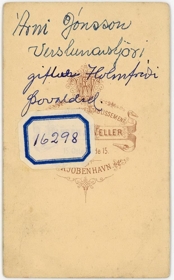 Árni Jónsson
Verslunarstjóri
giftur Hólmfríði
Þorvaldsd.
16298
KJØBENHAVN